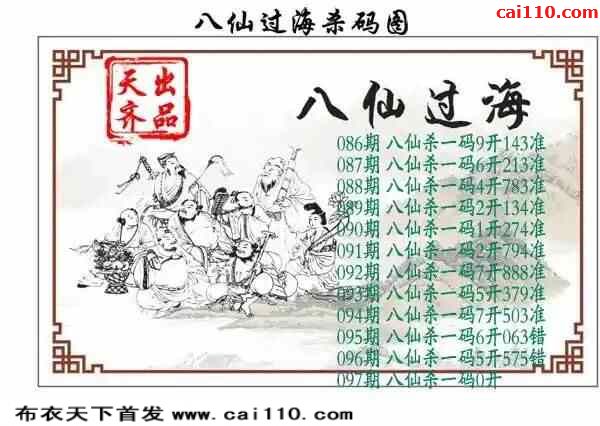 八仙过海杀码图
cai110.com
天齐出品
八仙过海
086期 八仙杀一码9开143准
087期 八仙杀一码6开213准
088期 八仙杀一码4开783准
089期 八仙杀一码2开134准
090期 八仙杀一码1开274准
091期 八仙杀一码2开794准
092期 八仙杀一码7开888准
093期 八仙杀一码5开379准
094期 八仙杀一码7开503准
095期 八仙杀一码6开063错
096期 八仙杀一码5开575错
097期 八仙杀一码0开
布衣天下首发 www.cai110.com